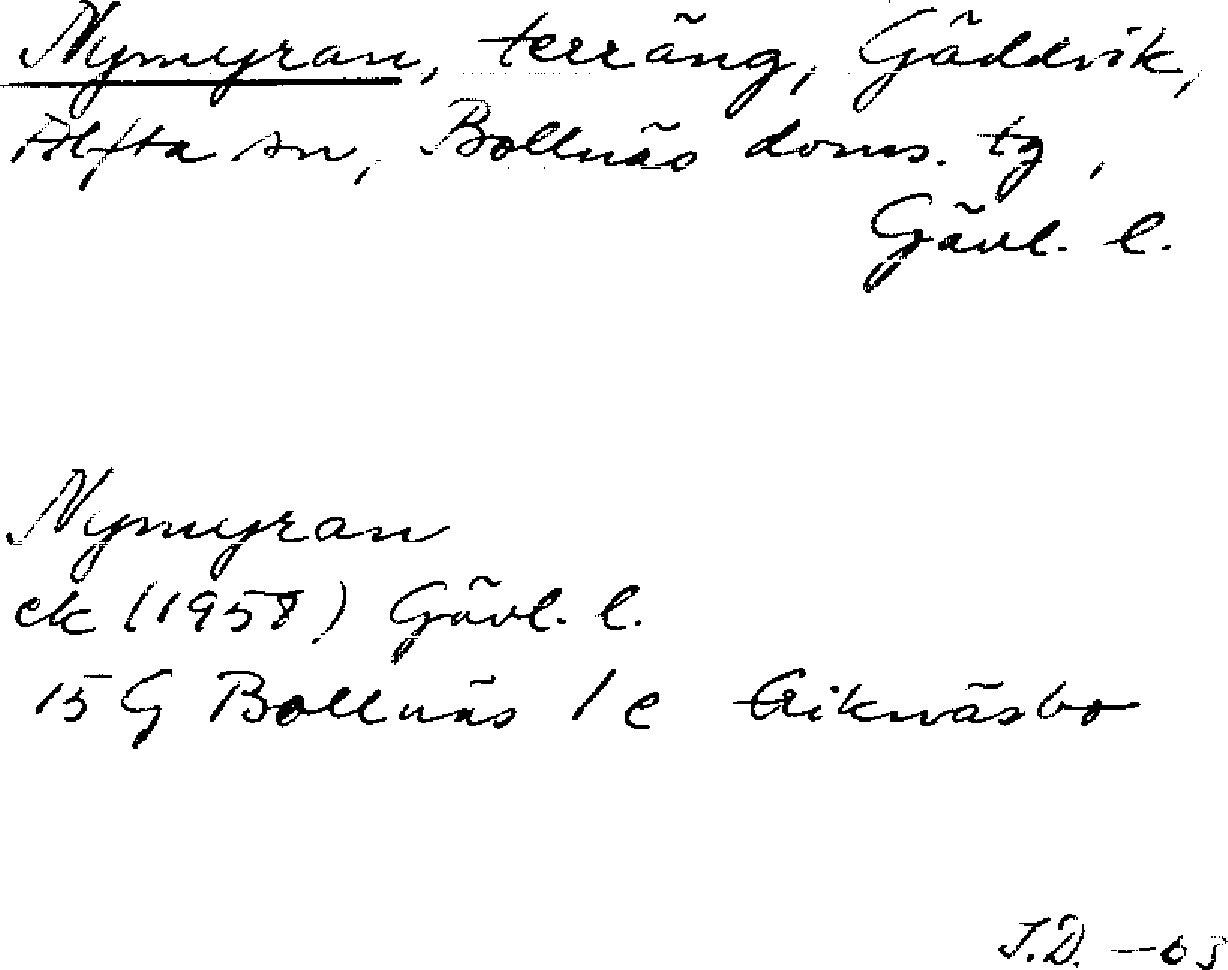 Nymyran, terräng, Gäddvik,
Alfta sn, Bollnäs doms. tg,
Gävl. l.
Nymyran
ek (1958) Gävl. l.
15 G Bollnäs 1 e Eriknäsbo
J.D. -63